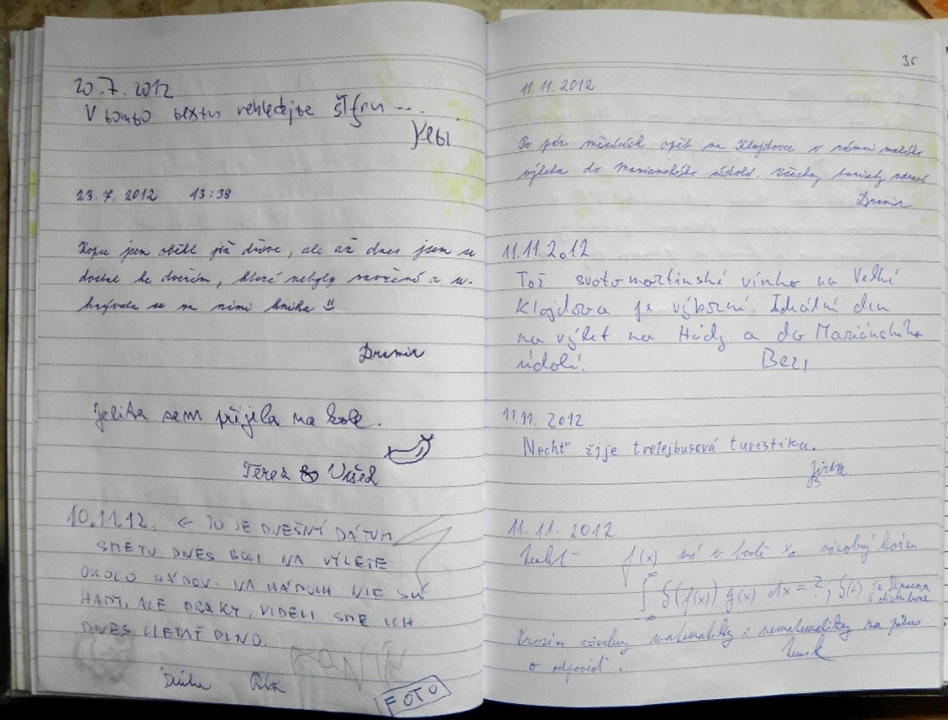 20.7.2012
V tomto textu nehledejte šifru ...
23.7.2012 13:38
Kopu jsem oběhl již dříve, ale až dnes jsem se
dostal ke dveřím, které nebyly zavřené a u-
krývala se za nimi kniha
Drumir
Jelita sem přijela na kole.
Terez & Vušel
10.11.12. ← TO JE DNEŠNÝ DÁTUM
SME TU DNES BOLI NA VÝLETE
OKOLO HÁDOV. NA HÁDOCH NIE SÚ
HADI, ALE DRAKY, VIDELI SME ICH
DNES LIETAŤ PLNO.
FOTO
36
11.11.2012
Po pár měsících opět na Klajdovce v rámci malého
výletu do Marianského údolí. Všechny turisty zdraví
Drumir
11.11.2012
Tož svatomartinské vínko na Velké
Klajdovce je výborné. Ideální den
na výlet na Hády a do Mariánského
údolí. Bezi
11.11.2012
Nechť žije trolejbusová turistika.
Jirka
11.11.2012
Nechť f(x) má v bodě x₀ násobný kořen
∫ δ(f(x)) g(x) dx = ?; δ(x) je Diracova
distribuce
Prosím všechny matematiky i nematematiky na přízeň
o odpověď.